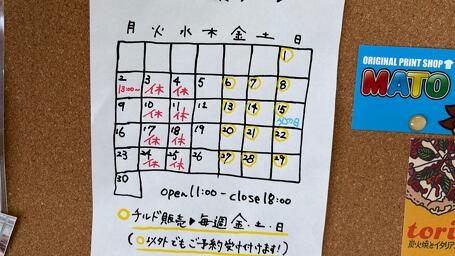 月 火 水 木 金 土 日
1
2 3 4 5 6 7 8
13:00~ 休 休
9 10 11 12 13 14 15
休 休
16 17 18 19 20 21 22
休 休
23 24 25 26 27 28 29
休 休
30
open 11:00 - close 18:00
○チルド販売▶毎週 金・土・日
(○以外でもご予約受け付けます!)
ORIGINAL PRINT SHOP
MATO
tori
炭火焼とイタリア